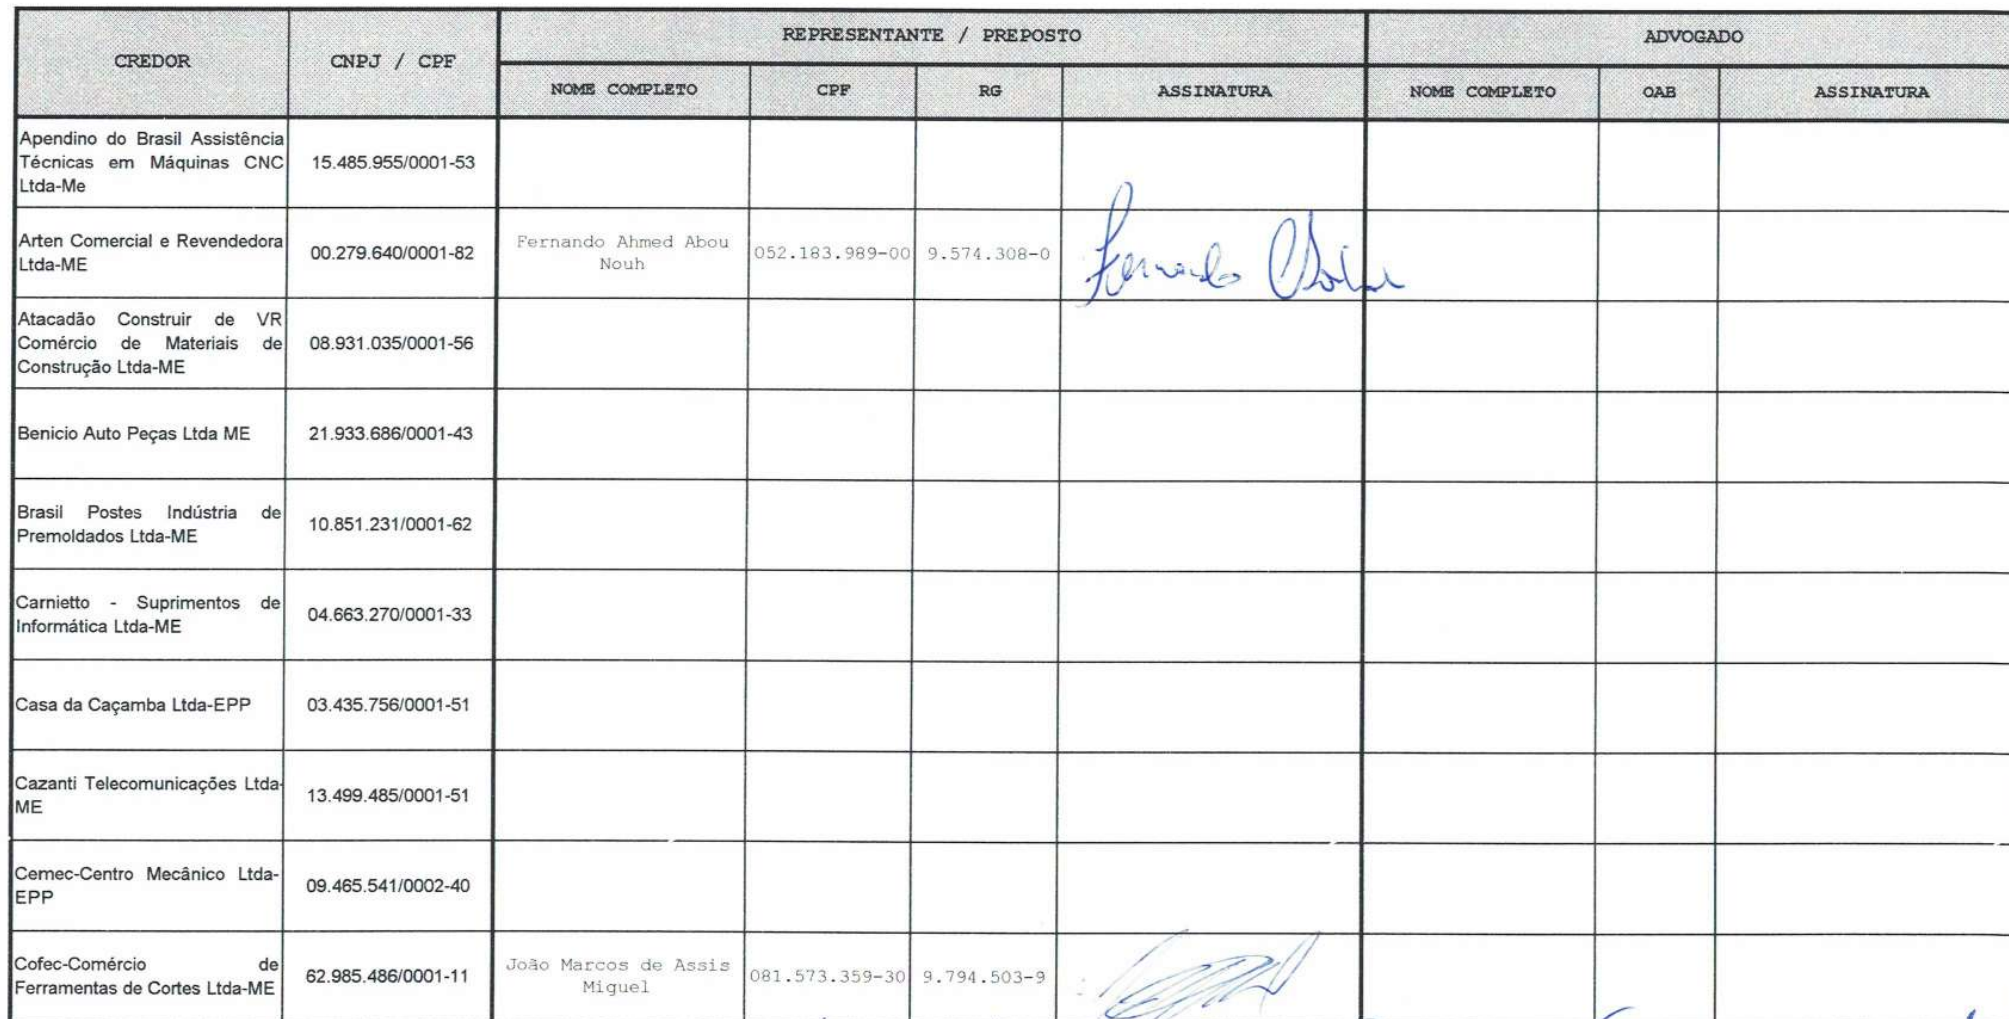 CREDOR CNPJ / CPF REPRESENTANTE / PREPOSTO ADVOGADO
NOME COMPLETO CPF RG ASSINATURA NOME COMPLETO OAB ASSINATURA
Apendino do Brasil Assistência
Técnicas em Máquinas CNC 15.485.955/0001-53
Ltda-Me
Arten Comercial e Revendedora
Ltda-ME
00.279.640/0001-82
Fernando Ahmed Abou
Nouh
052.183.989-00 9.574.308-0
Fernando
Atacadão Construir de VR
Comércio de Materiais de 08.931.035/0001-56
Construção Ltda-ME
Benicio Auto Peças Ltda ME 21.933.686/0001-43
Brasil Postes Indústria de
Premoldados Ltda-ME
10.851.231/0001-62
Carnietto - Suprimentos de
Informática Ltda-ME
04.663.270/0001-33
Casa da Caçamba Ltda-EPP 03.435.756/0001-51
Cazanti Telecomunicações Ltda-
ME
13.499.485/0001-51
Cemec-Centro Mecânico Ltda-
EPP
09.465.541/0002-40
Cofec-Comércio de
Ferramentas de Cortes Ltda-ME
62.985.486/0001-11
João Marcos de Assis
Miguel
081.573.359-30 9.794.503-9